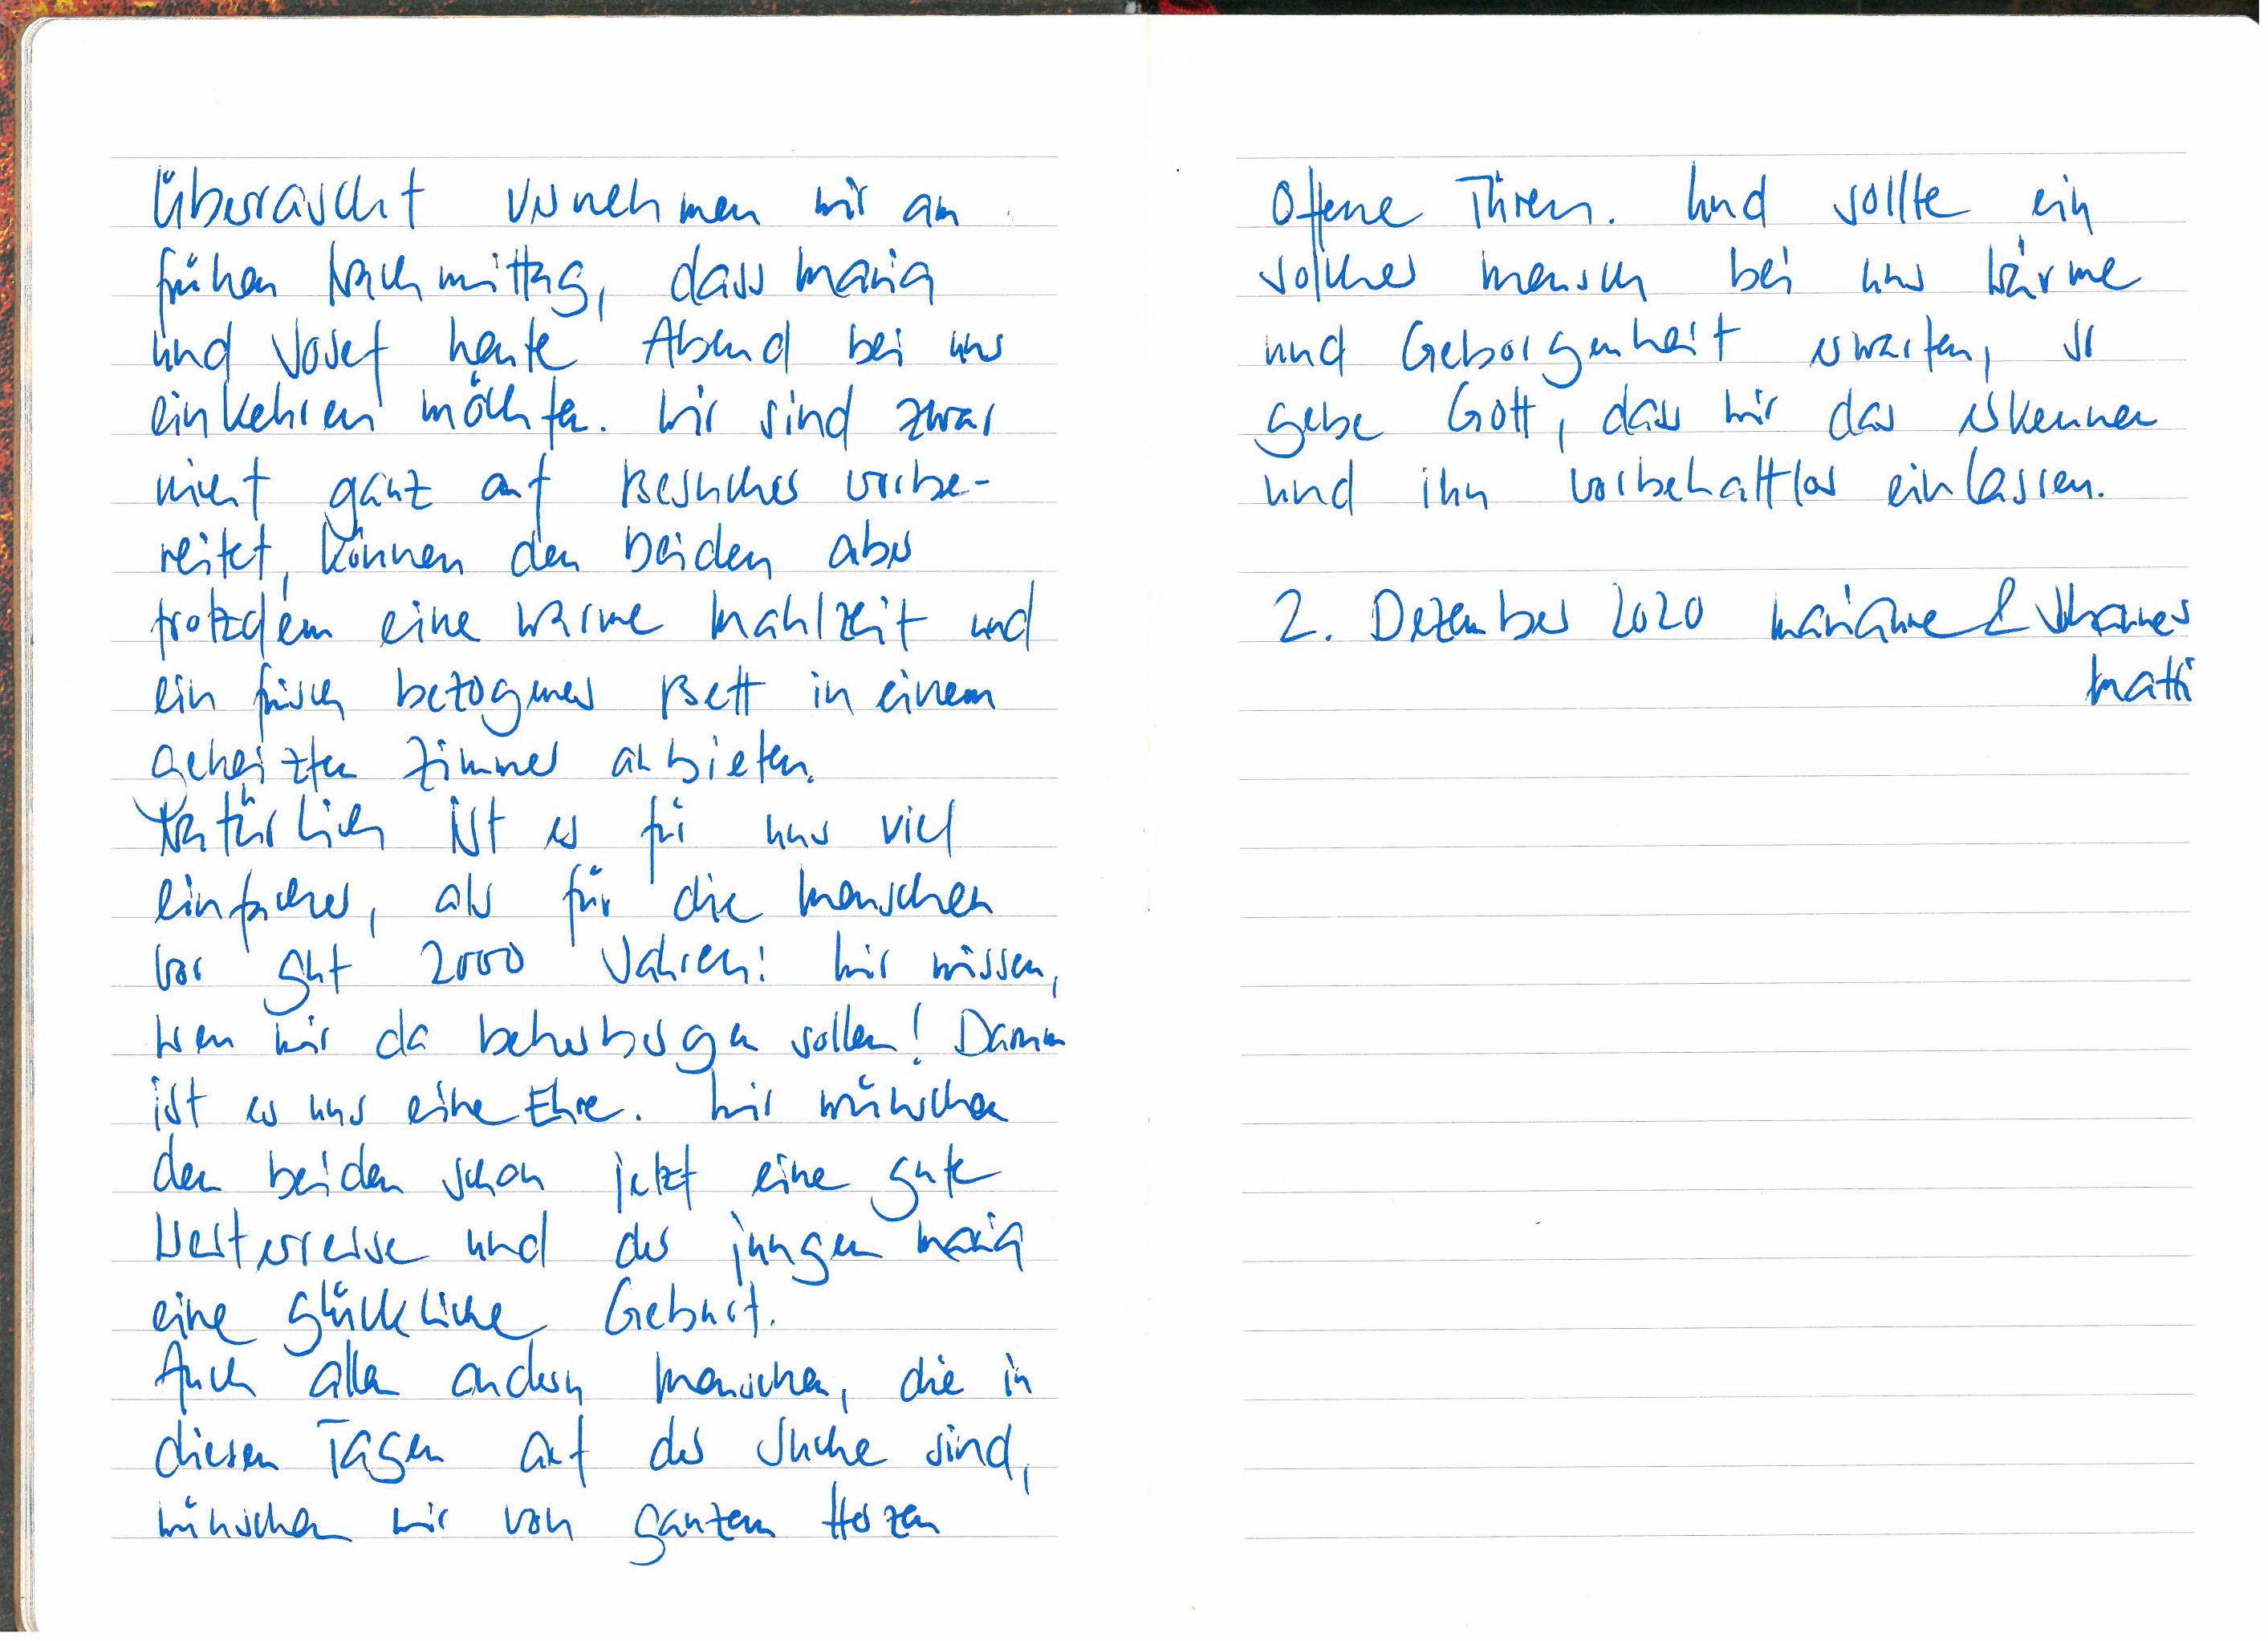 Überrascht vernehmen wir am
frühen Nachmittag, dass Maria
und Josef heute Abend bei uns
einkehren möchten. Wir sind zwar
nicht ganz auf Besucher vorbe-
reitet, können den beiden aber
trotzdem eine warme Mahlzeit und
ein frisch bezogenes Bett in einem
geheizten Zimmer anbieten.
Natürlich ist es für uns viel
einfacher, als für die Menschen
vor gut 2000 Jahren: Wir wissen,
wen wir da beherbergen sollen! Darum
ist es uns eine Ehre. Wir wünschen
den beiden schon jetzt eine gute
Weiterreise und der jungen Maria
eine glückliche Geburt.
Auch allen andern Menschen, die in
diesen Tagen auf der Suche sind,
wünschen wir von ganzem Herzen
offene Türen. Und sollte ein
solcher Mensch bei uns Wärme
und Geborgenheit erwarten, so
gebe Gott, dass wir das erkennen
und ihn vorbehaltlos einlassen.
2. Dezember 2020 Marianne & Johannes
Matti